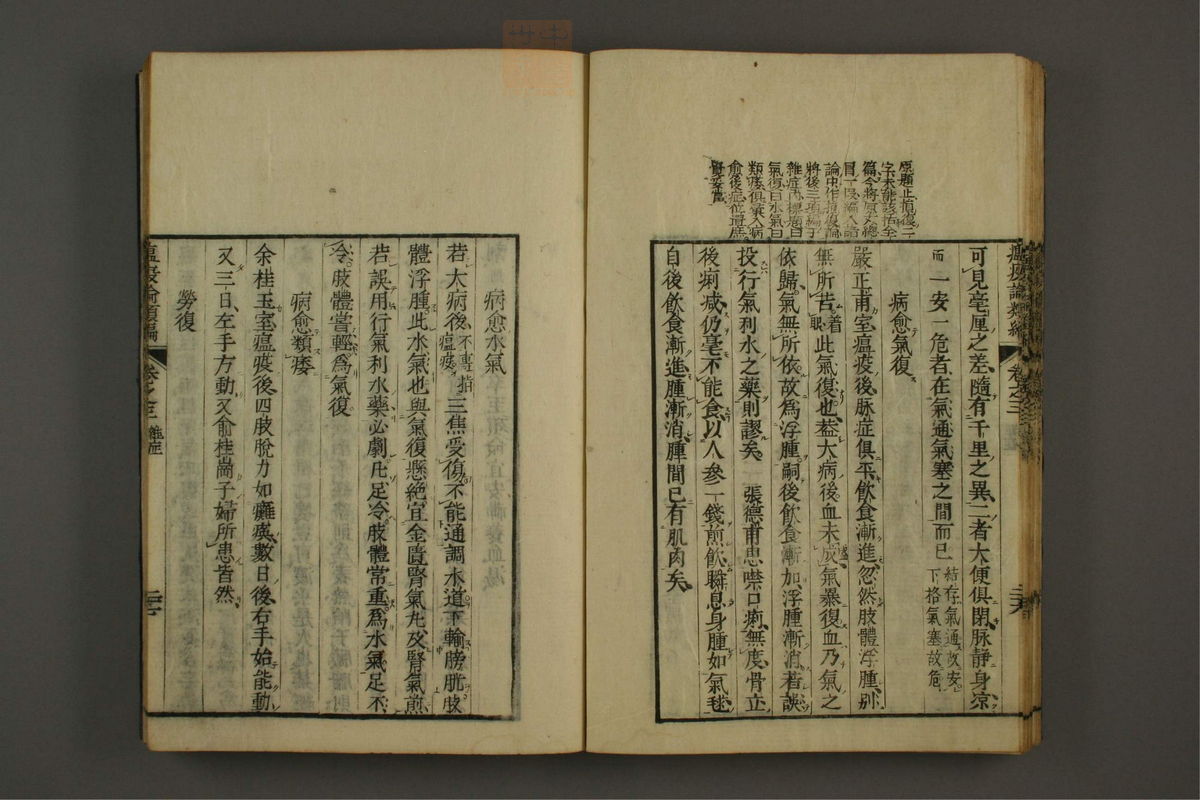 瘟疫論類編 卷之三
原題止損復二
字未能該括全
篇今將原文總
論中作損復論
將後三項編于
雜症內標題曰
氣復曰水氣曰
類痿俱彙入病
愈後症
可見毫厘之差隨有千里之異二者大便俱閉脉靜身凉
而一安一危者在氣通氣塞之間而已結存氣通故安下格氣塞故危
病愈氣復
嚴正甫室瘟疫後脉症俱平飲食漸進忽然肢體浮腫別
無所苦着此氣復也葢大病後血未盛氣暴復血乃氣之
依歸氣無所依故爲浮腫嗣後飲食漸加浮腫漸消若誤
投行氣利水之藥則謬矣 張德甫患噤口痢無度骨立
後痢减仍毫不能食以人參一錢煎飲瞬息身腫如氣毬
自後飲食漸進腫漸消腫間已有肌肉矣
病愈水氣
若大病後不專指瘟疫三焦受傷不能通調水道下輸膀胱肢
體浮腫此水氣也與氣復懸絶宜金匱腎氣丸及腎氣煎
若誤用行氣利水藥必劇凡足冷肢體常重爲水氣足不
冷肢體嘗輕爲氣復
病愈類痿
余桂玉室瘟疫後四肢脫力如癱瘓數日後右手始能動
又三日左手方動又俞桂崗子婦所患皆然
勞復
瘟疫論類編 卷之三 雜症